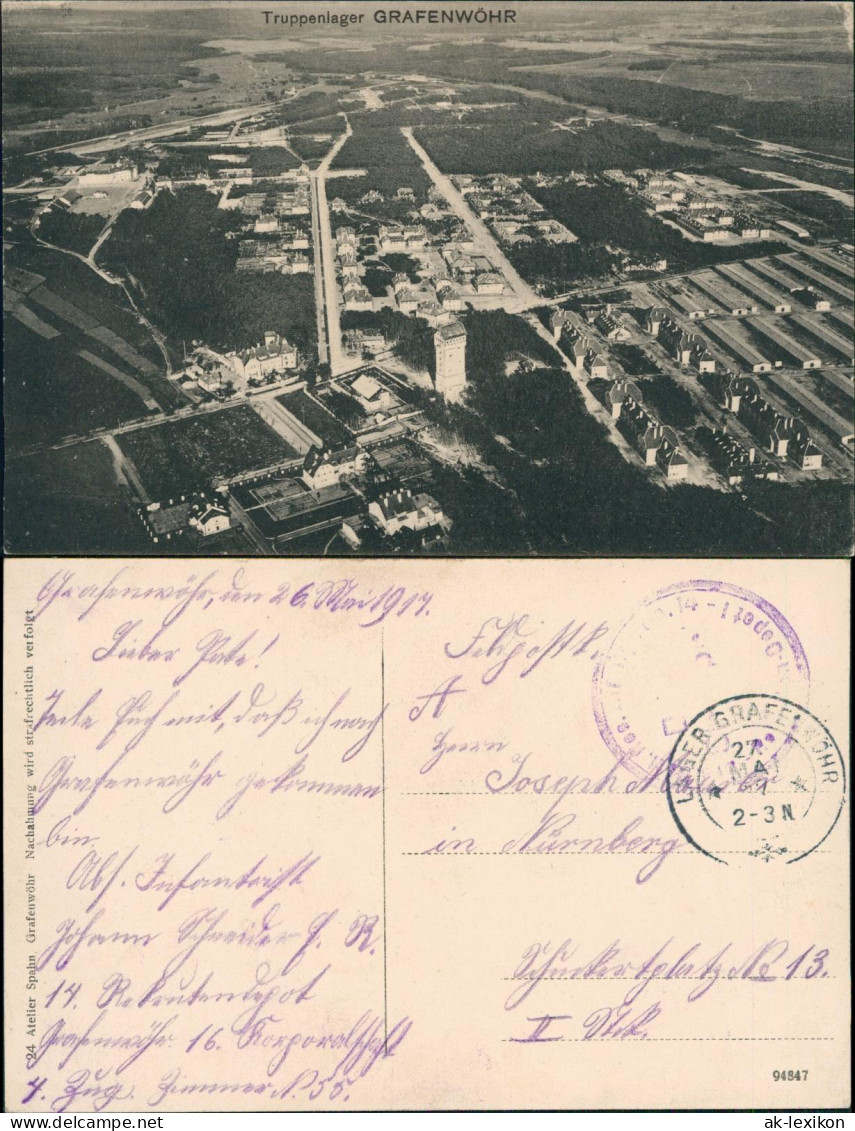 Truppenlager GRAFENWÖHR
Grafenwöhr, den 26. Mai 1917.
Lieber Pate!
Teile Euch mit, daß ich nach
Grafenwöhr gekommen
bin.
Abs. Infanterist
Johann Schneider E. R.
14. Rekrutendepot
Grafenwöhr. 16. Korporalschaft
4. Zug. Zimmer N. 55.
24 Atelier Spahn, Grafenwöhr Nachahmung wird strafrechtlich verfolgt
Feldpostk.
A
Herrn
Joseph
in Nürnberg
Schuckertplatz No 13.
II Stck.
14 - Depot
LAGER GRAFENWÖHR
27
MAI
2-3 N
94847
ak-lexikon.com